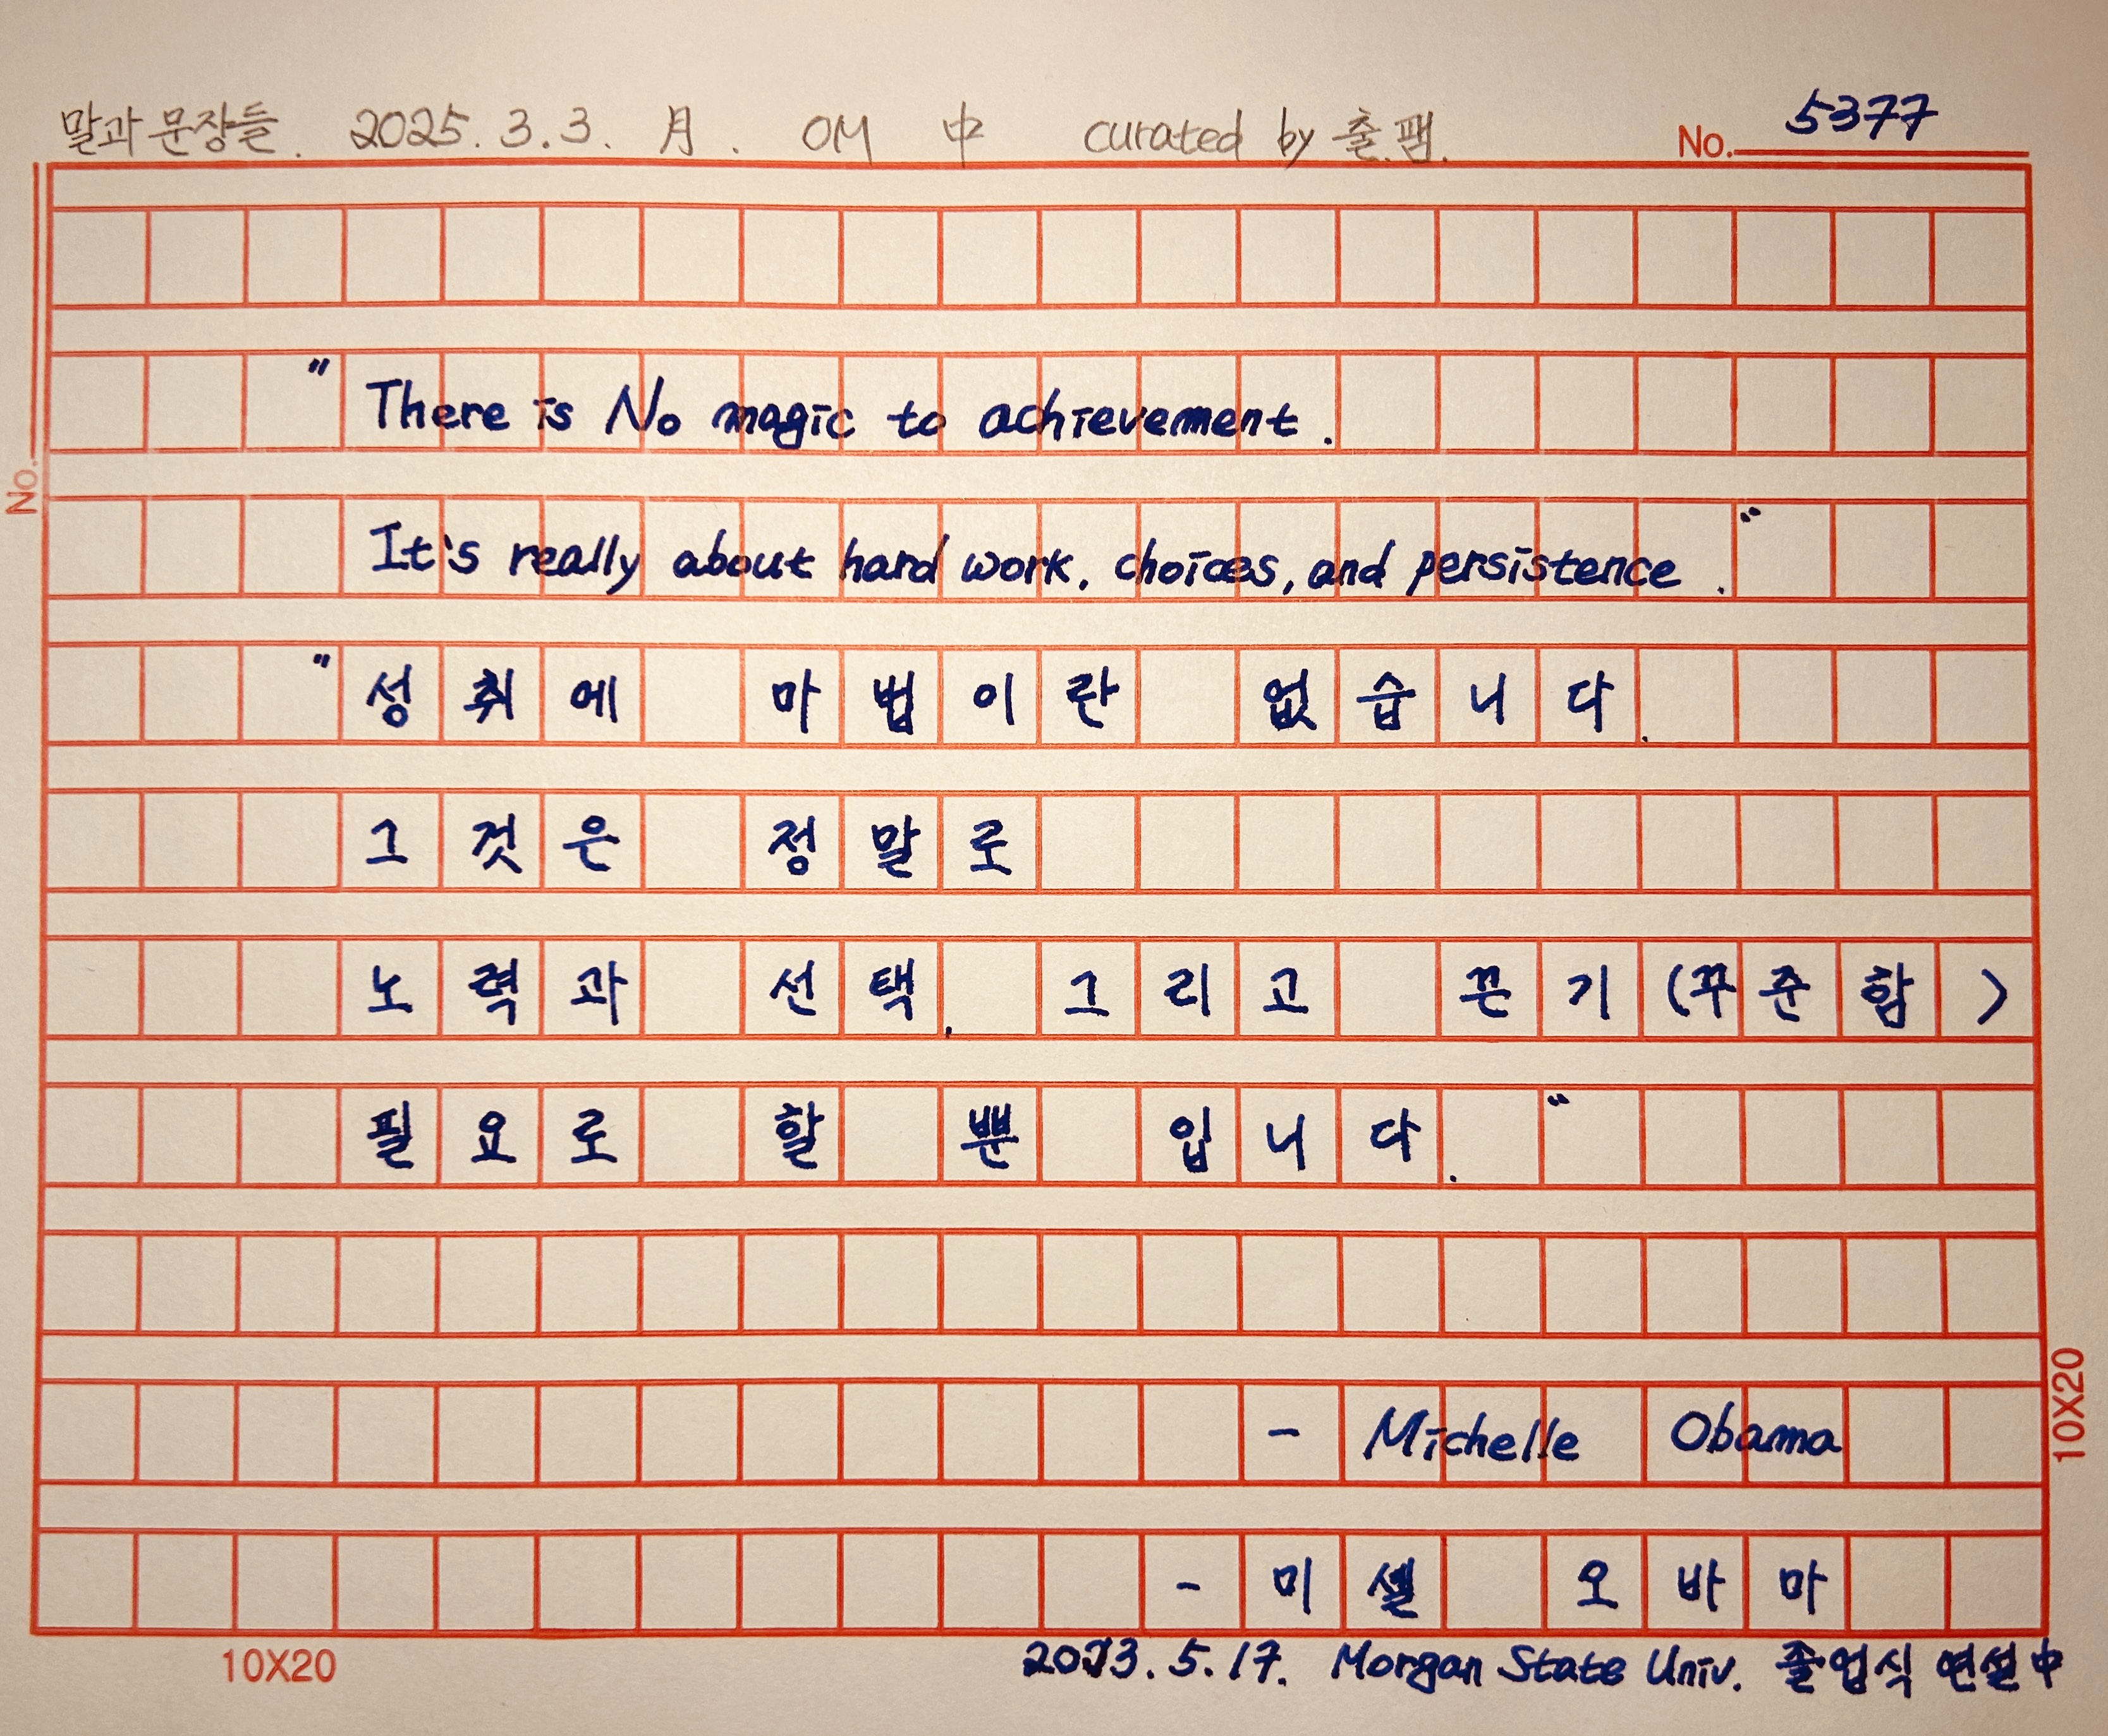 말과 문장들. 2025. 3. 3. 月. OM 中 curated by 출.팸. No. 5377
No.
" There is No magic to achievement.
It's really about hard work, choices, and persistence. "
" 성취에 마법이란 없습니다.
그것은 정말로
노력과 선택. 그리고 끈기 (꾸준함)
필요로 할 뿐 입니다. "
- Michelle Obama
10X20
- 미셸 오바마
10X20
Morgan State Univ. 졸업식 연설 中